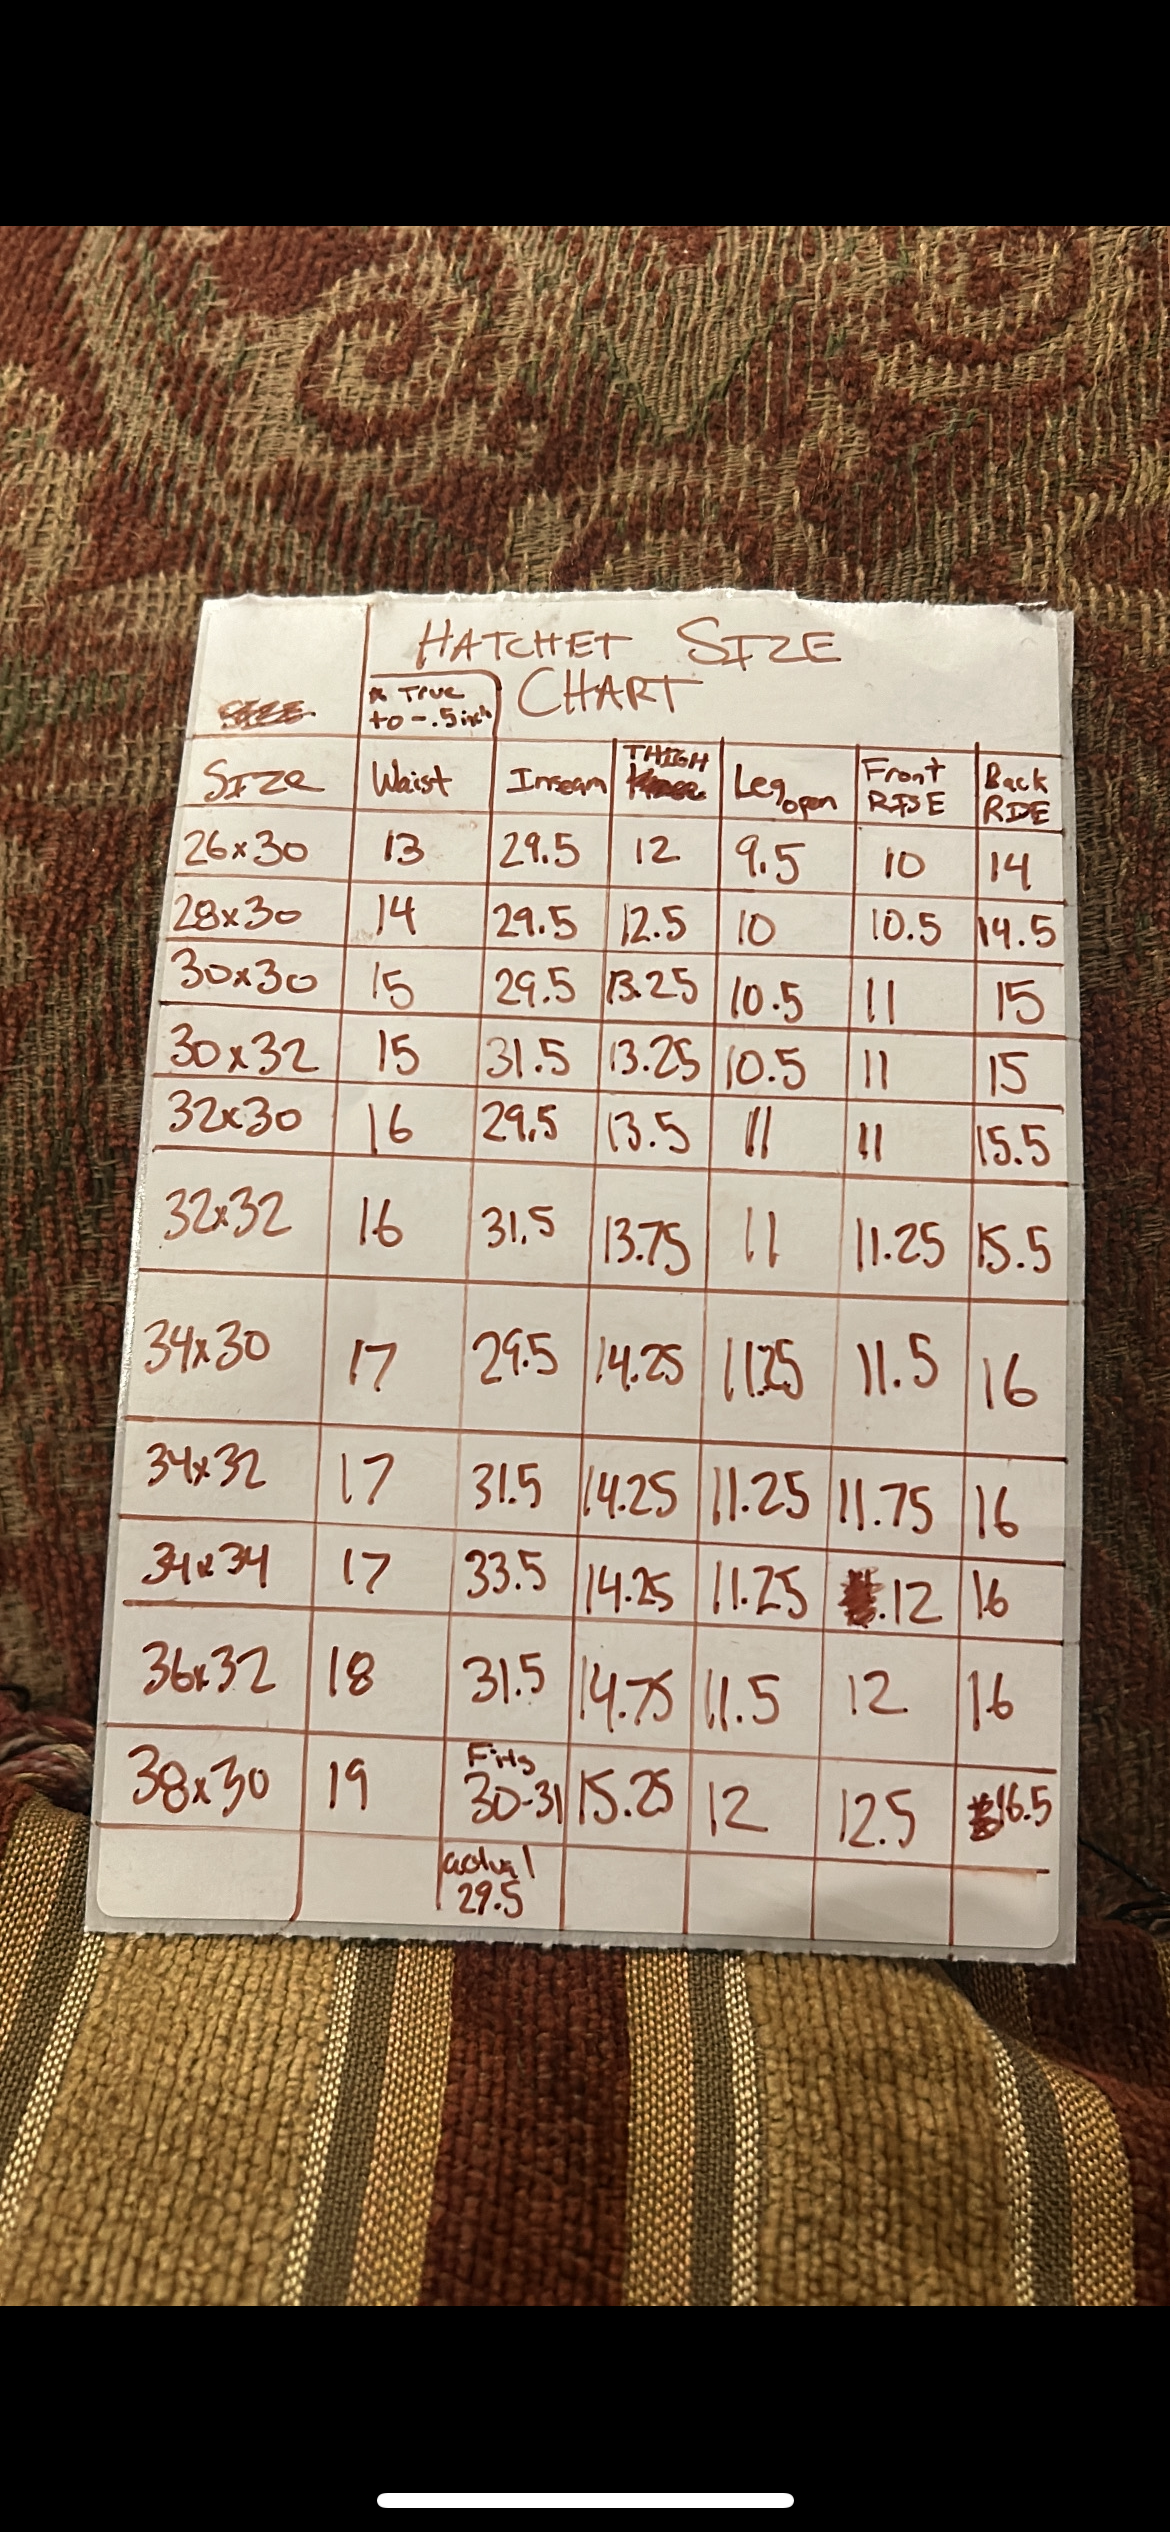 HATCHET SIZE
CHART
* True
to -.5inch
SIZE Waist Inseam THIGH Leg open Front RISE Back RISE
26x30 13 29.5 12 9.5 10 14
28x30 14 29.5 12.5 10 10.5 14.5
30x30 15 29.5 13.25 10.5 11 15
30x32 15 31.5 13.25 10.5 11 15
32x30 16 29.5 13.5 11 11 15.5
32x32 16 31.5 13.75 11 11.25 15.5
34x30 17 29.5 14.25 11.25 11.5 16
34x32 17 31.5 14.25 11.25 11.75 16
34x34 17 33.5 14.25 11.25 .12 16
36x32 18 31.5 14.75 11.5 12 16
38x30 19 Fits 30-31 15.25 12 12.5 16.5
actual
29.5